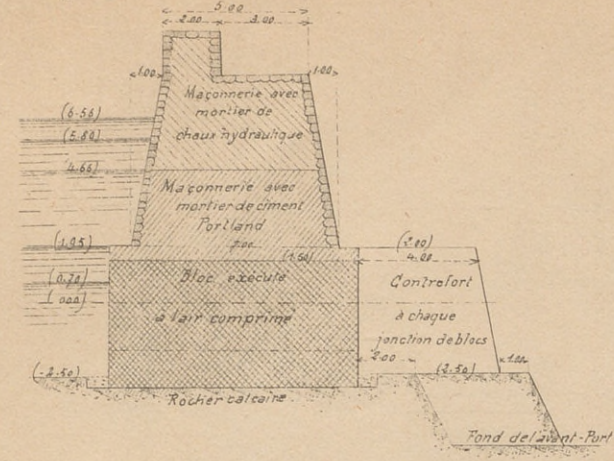 5.00
2.00 3.00
1.00 1.00
Maçonnerie avec
mortier de
chaux hydraulique
(6.56)
(5.80)
4.66)
Maçonnerie avec
mortier de ciment
Portland
7.00
(1.95)
(1.50)
(2.00)
4.00
Bloc exécuté
à l'air comprimé
(0.20)
(000)
Contrefort
à chaque
jonction de blocs
2.00
1.00
(-2.50)
(2.50)
Rocher calcaire
Fond de l'avant-Port